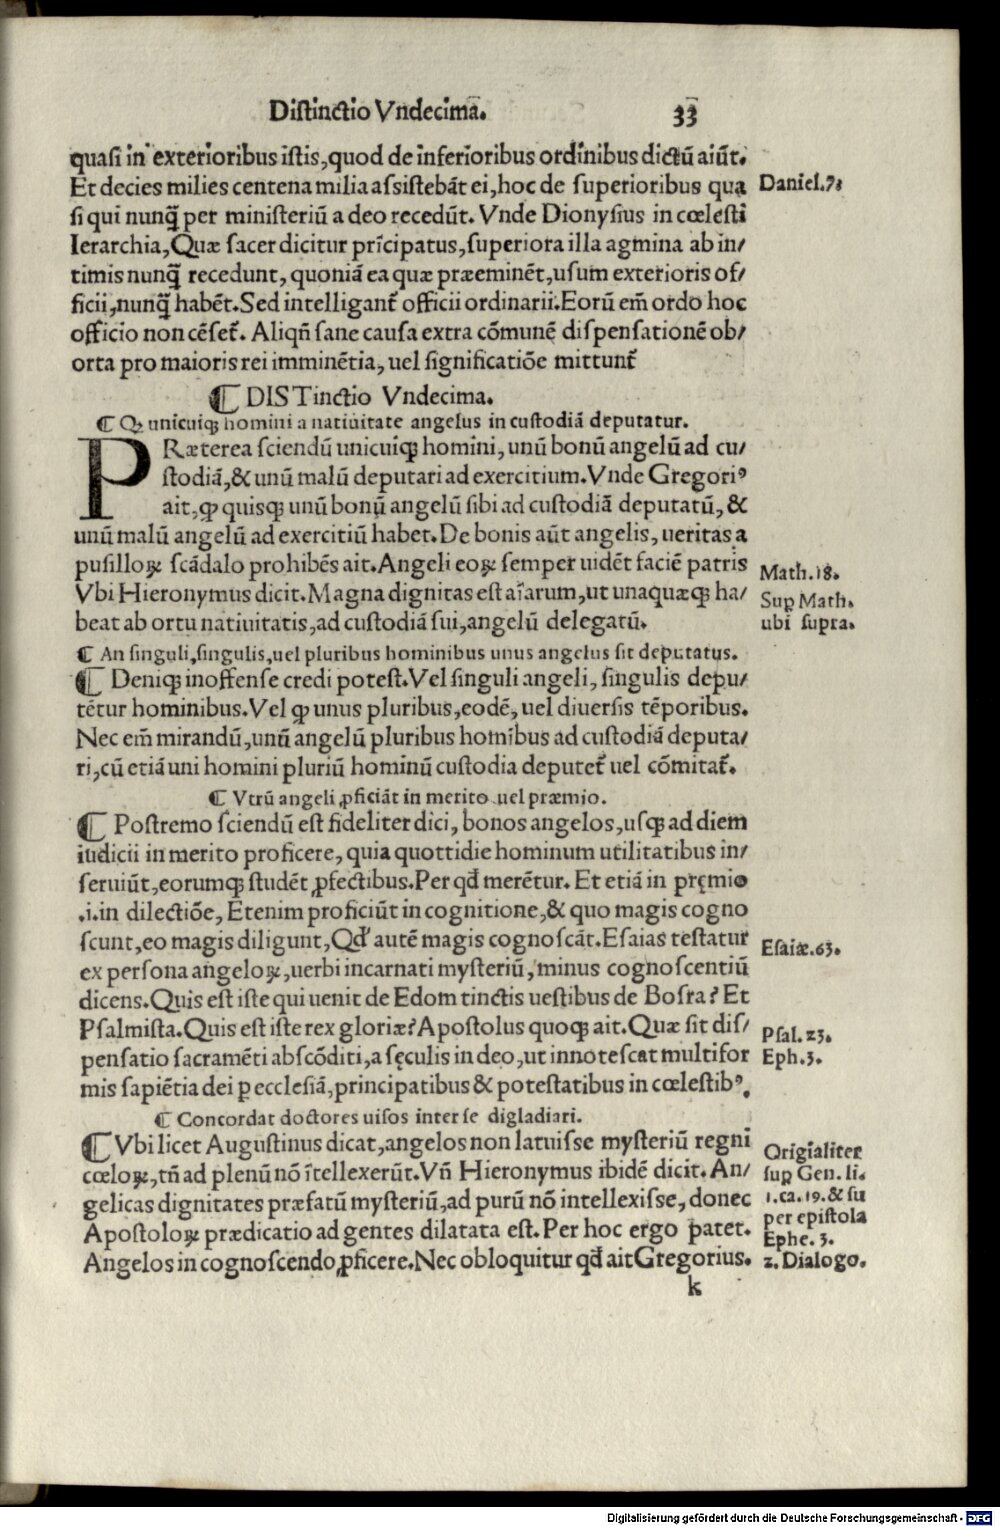 Distinctio Vndecima. 33
quasi in exterioribus istis, quod de inferioribus ordinibus dictū aiūt.
Et decies milies centena milia assistebāt ei, hoc de superioribus qua
Daniel.7.
si qui nunq̄ per ministeriū a deo recedūt. Vnde Dionysius in cœlesti
Ierarchia, Quæ sacer dicitur prīcipatus, superiora illa agmina ab in/
timis nunq̄ recedunt, quoniā ea quæ præeminēt, usum exterioris of/
ficii, nunq̄ habēt. Sed intelligant᷑ officii ordinarii. Eorū em̄ ordo hoc
officio non cēset᷑. Aliqn̄ sane causa extra cōmunē dispensationē ob/
orta pro maioris rei imminētia, uel significatiōe mittunt᷑
¶ DISTinctio Vndecima.
¶ Qꝫ unicuiqꝫ homini a natiuitate angelus in custodiā deputatur.
PRæterea sciendū unicuiqꝫ homini, unū bonū angelū ad cu/
stodiā, & unū malū deputari ad exercitium. Vnde Gregoriꝰ
ait, ꝙ quisqꝫ unū bonū angelū sibi ad custodiā deputatū, &
unū malū angelū ad exercitiū habet. De bonis aūt angelis, ueritas a
pusilloꝝ scādalo prohibēs ait. Angeli eoꝝ semper uidēt faciē patris
Math.18.
Vbi Hieronymus dicit. Magna dignitas est aīarum, ut unaquæqꝫ ha/
Suꝑ Math.
beat ab ortu natiuitatis, ad custodiā sui, angelū delegatū.
ubi supra.
¶ An singuli, singulis, uel pluribus hominibus unus angelus sit deputatus.
¶ Deniqꝫ inoffense credi potest. Vel singuli angeli, singulis depu/
tētur hominibus. Vel ꝙ unus pluribus, eodē, uel diuersis tēporibus.
Nec em̄ mirandū, unū angelū pluribus homībus ad custodiā deputa/
ri, cū etiā uni homini pluriū hominū custodia deputet᷑ uel cōmitat᷑.
¶ Vtrū angeli ꝓficiāt in merito uel præmio.
¶ Postremo sciendū est fideliter dici, bonos angelos, usqꝫ ad diem
iudicii in merito proficere, quia quottidie hominum utilitatibus in/
seruiūt, eorumqꝫ studēt ꝓfectibus. Per qđ merētur. Et etiā in pręmio
.i. in dilectiōe, Etenim proficiūt in cognitione, & quo magis cogno
scunt, eo magis diligunt, Qđ autē magis cognoscāt. Esaias testatur
Esaiæ.63.
ex persona angeloꝝ, uerbi incarnati mysteriū, minus cognoscentiū
dicens. Quis est iste qui uenit de Edom tinctis uestibus de Bosra? Et
Psalmista. Quis est iste rex gloriæ? Apostolus quoqꝫ ait. Quæ sit dis/
Psal.23.
pensatio sacramēti abscōditi, a sęculis in deo, ut innotescat multifor
Eph.3.
mis sapiētia dei ꝑ ecclesiā, principatibus & potestatibus in cœlestibꝰ.
¶ Concordat doctores uisos inter se digladiari.
¶ Vbi licet Augustinus dicat, angelos non latuisse mysteriū regni
Origīaliter
cœloꝝ, tn̄ ad plenū nō ītellexerūt. Vn̄ Hieronymus ibidē dicit. An/
suꝑ Gen. li.
gelicas dignitates præfatū mysteriū, ad purū nō intellexisse, donec
1.ca.19.& su
Apostoloꝝ prædicatio ad gentes dilatata est. Per hoc ergo patet.
per epistola
Ephe.3.
Angelos in cognoscendo ꝓficere. Nec obloquitur qđ ait Gregorius.
2. Dialogo.
k
Digitalisierung gefördert durch die Deutsche Forschungsgemeinschaft - DFG